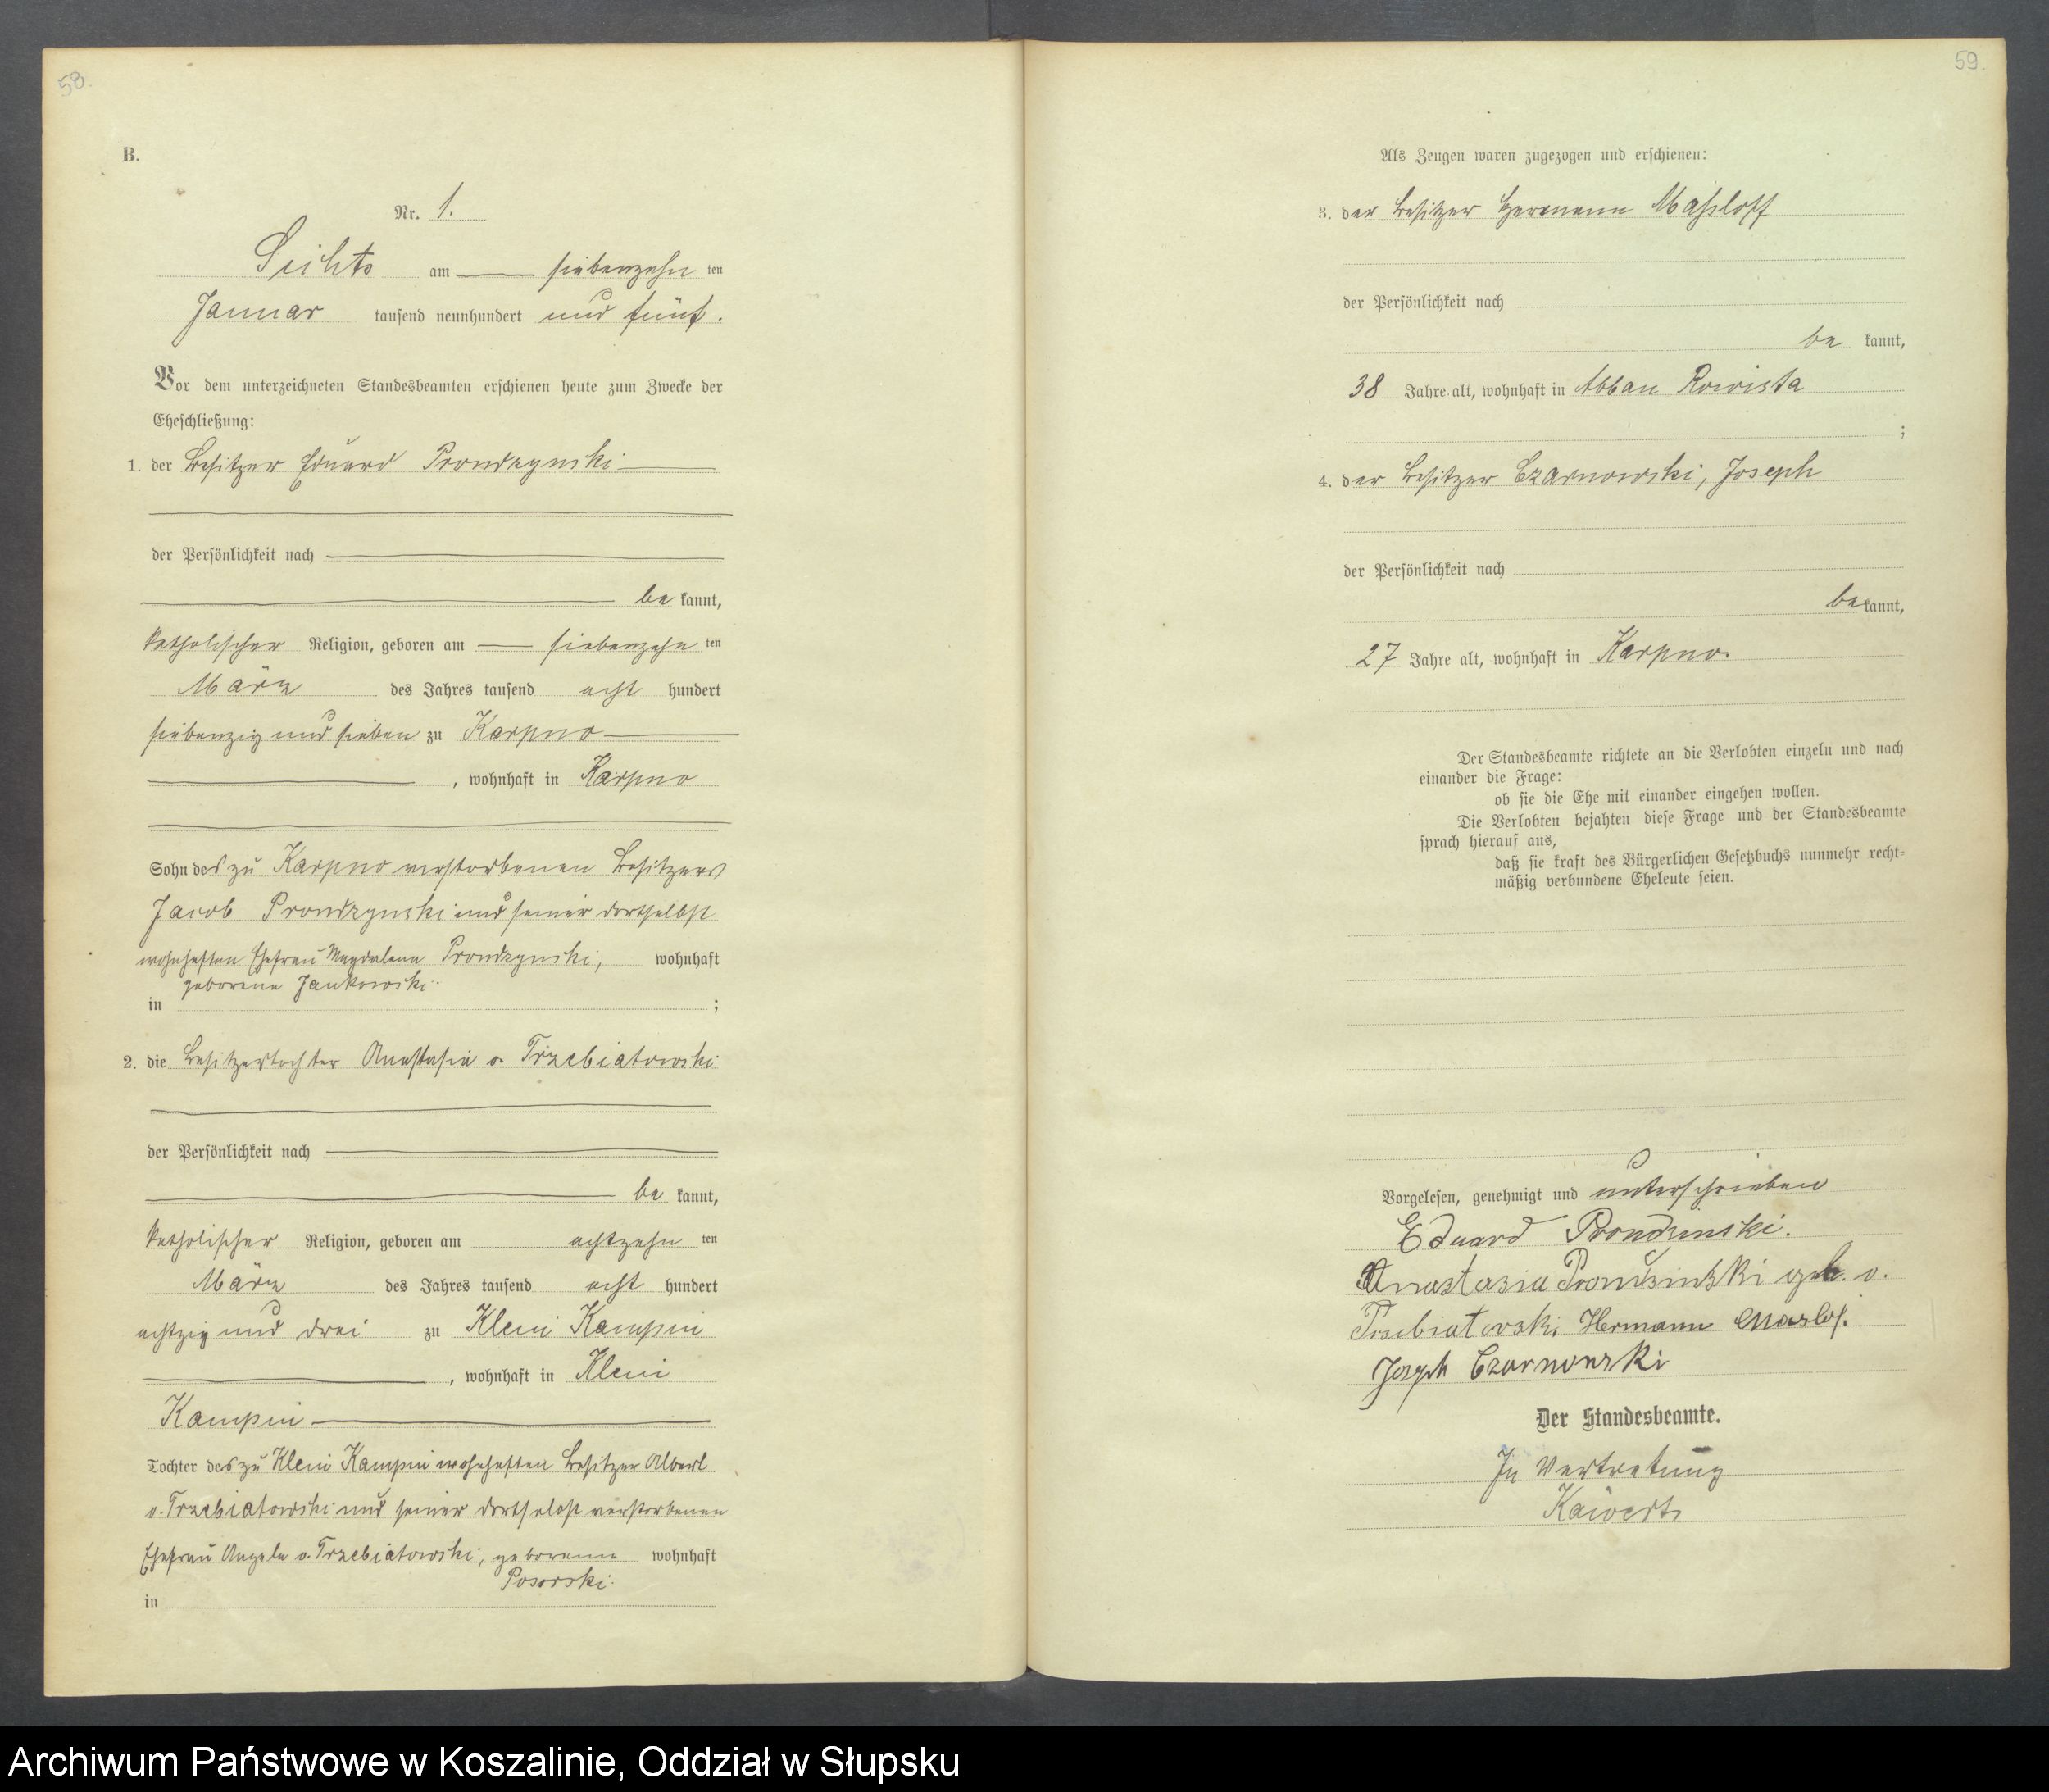 58.
B.
Nr. 1.
am siebenzehn ten
Januar tausend neunhundert und fünf.
Vor dem unterzeichneten Standesbeamten erschienen heute zum Zwecke der
Eheschließung:
1. der Besitzer Eduard Prondzynski
der Persönlichkeit nach
be kannt,
katholischer Religion, geboren am siebenzehn ten
März des Jahres tausend acht hundert
siebenzig und sieben zu Karpno
, wohnhaft in Karpno
Sohn des zu Karpno verstorbenen Besitzers
Jacob Prondzynski und seiner dortselbst
wohnhaften Ehefrau Magdalena Prondzynski, wohnhaft
geborene Jankowski.
in ;
2. die Besitzertochter Anastasia v. Trzebiatowski
der Persönlichkeit nach
be kannt,
katholischer Religion, geboren am achtzehn ten
März des Jahres tausend acht hundert
achtzig und drei zu Klein Kampin
, wohnhaft in Klein
Kampin
Tochter des zu Klein Kampin wohnhaften Besitzer Albert
v. Trzebiatowski und seiner dortselbst verstorbenen
Ehefrau Angela v. Trzebiatowski, geborenen wohnhaft
in
59.
Als Zeugen waren zugezogen und erschienen:
3. der Besitzer Hermann Maßloff
der Persönlichkeit nach
be kannt,
38 Jahre alt, wohnhaft in Abbau
;
4. der Besitzer Czarnowski, Joseph
der Persönlichkeit nach
be kannt,
27 Jahre alt, wohnhaft in Karpno
Der Standesbeamte richtete an die Verlobten einzeln und nach
einander die Frage:
ob sie die Ehe mit einander eingehen wollen.
Die Verlobten bejahten diese Frage und der Standesbeamte
sprach hierauf aus,
daß sie kraft des Bürgerlichen Gesetzbuchs nunmehr recht=
mäßig verbundene Eheleute seien.
Vorgelesen, genehmigt und unterschrieben
Eduard Prondzinski.
Anastasia Prondzinski geb. v.
Hermann Maslof.
Joseph Czarnowski
Der Standesbeamte.
In Vertretung
Archiwum Państwowe w Koszalinie, Oddział w Słupsku